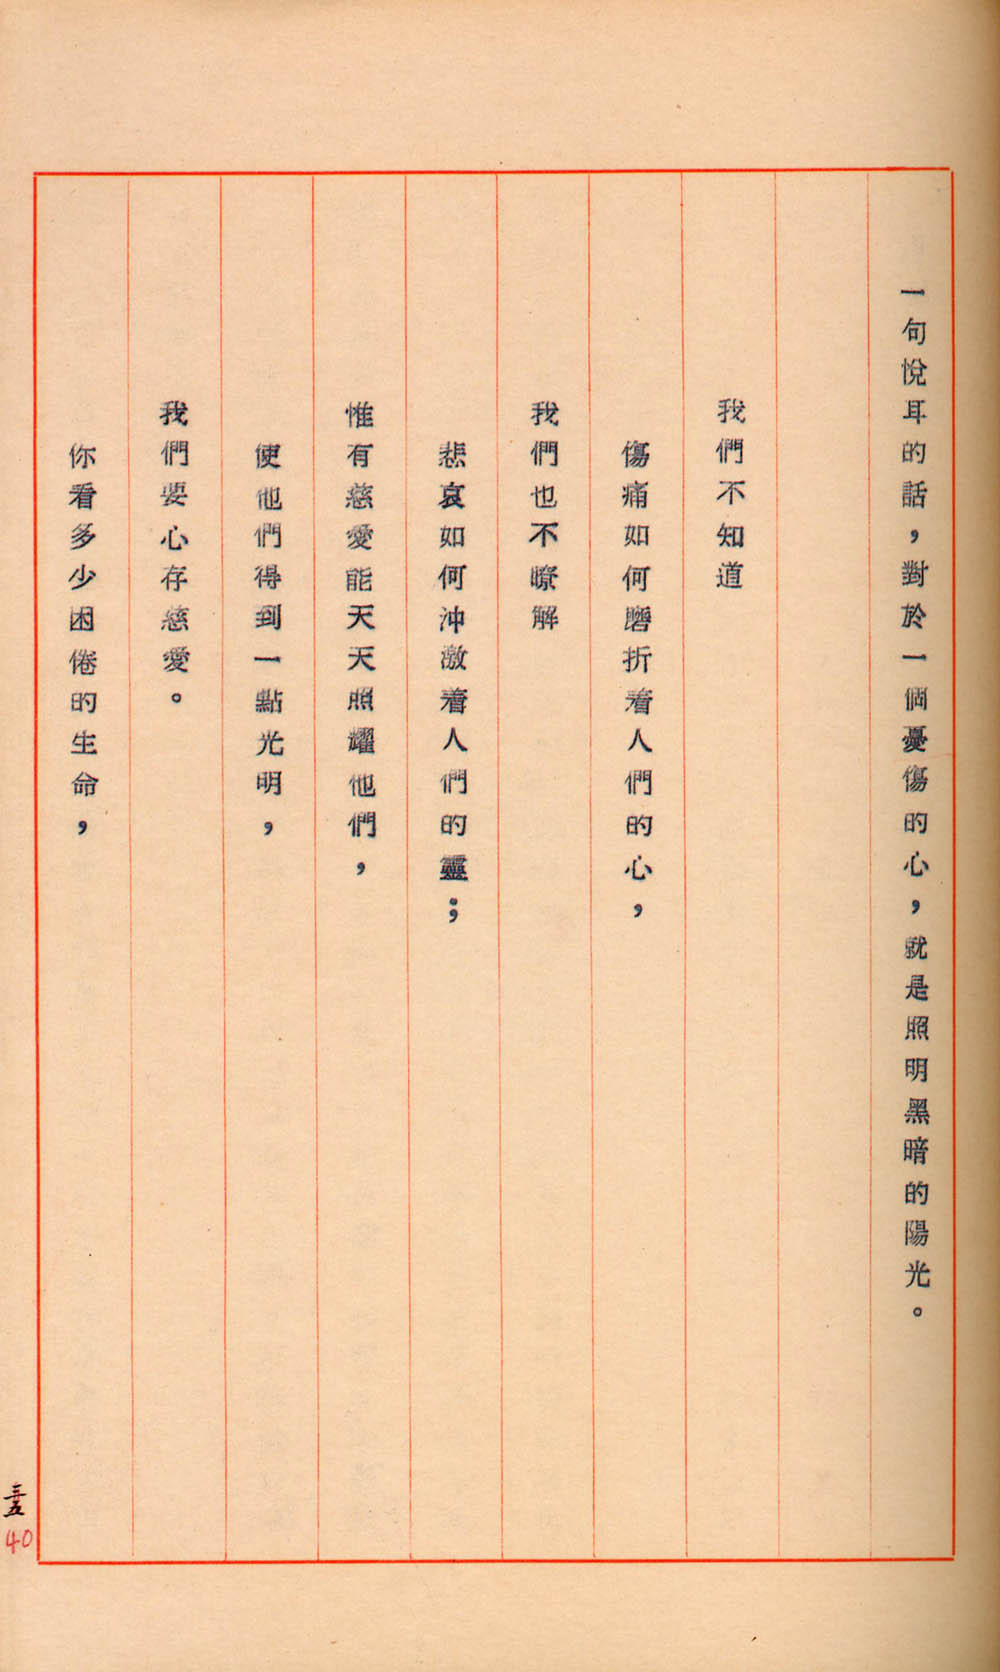 一句悅耳的話，對於一個憂傷的心，就是照明黑暗的陽光。
我們不知道
傷痛如何磨折着人們的心，
我們也不暸解
悲哀如何沖激着人們的靈；
惟有慈愛能天天照耀他們，
使他們得到一點光明，
我們要心存慈愛。
你看多少困倦的生命，
三五
40